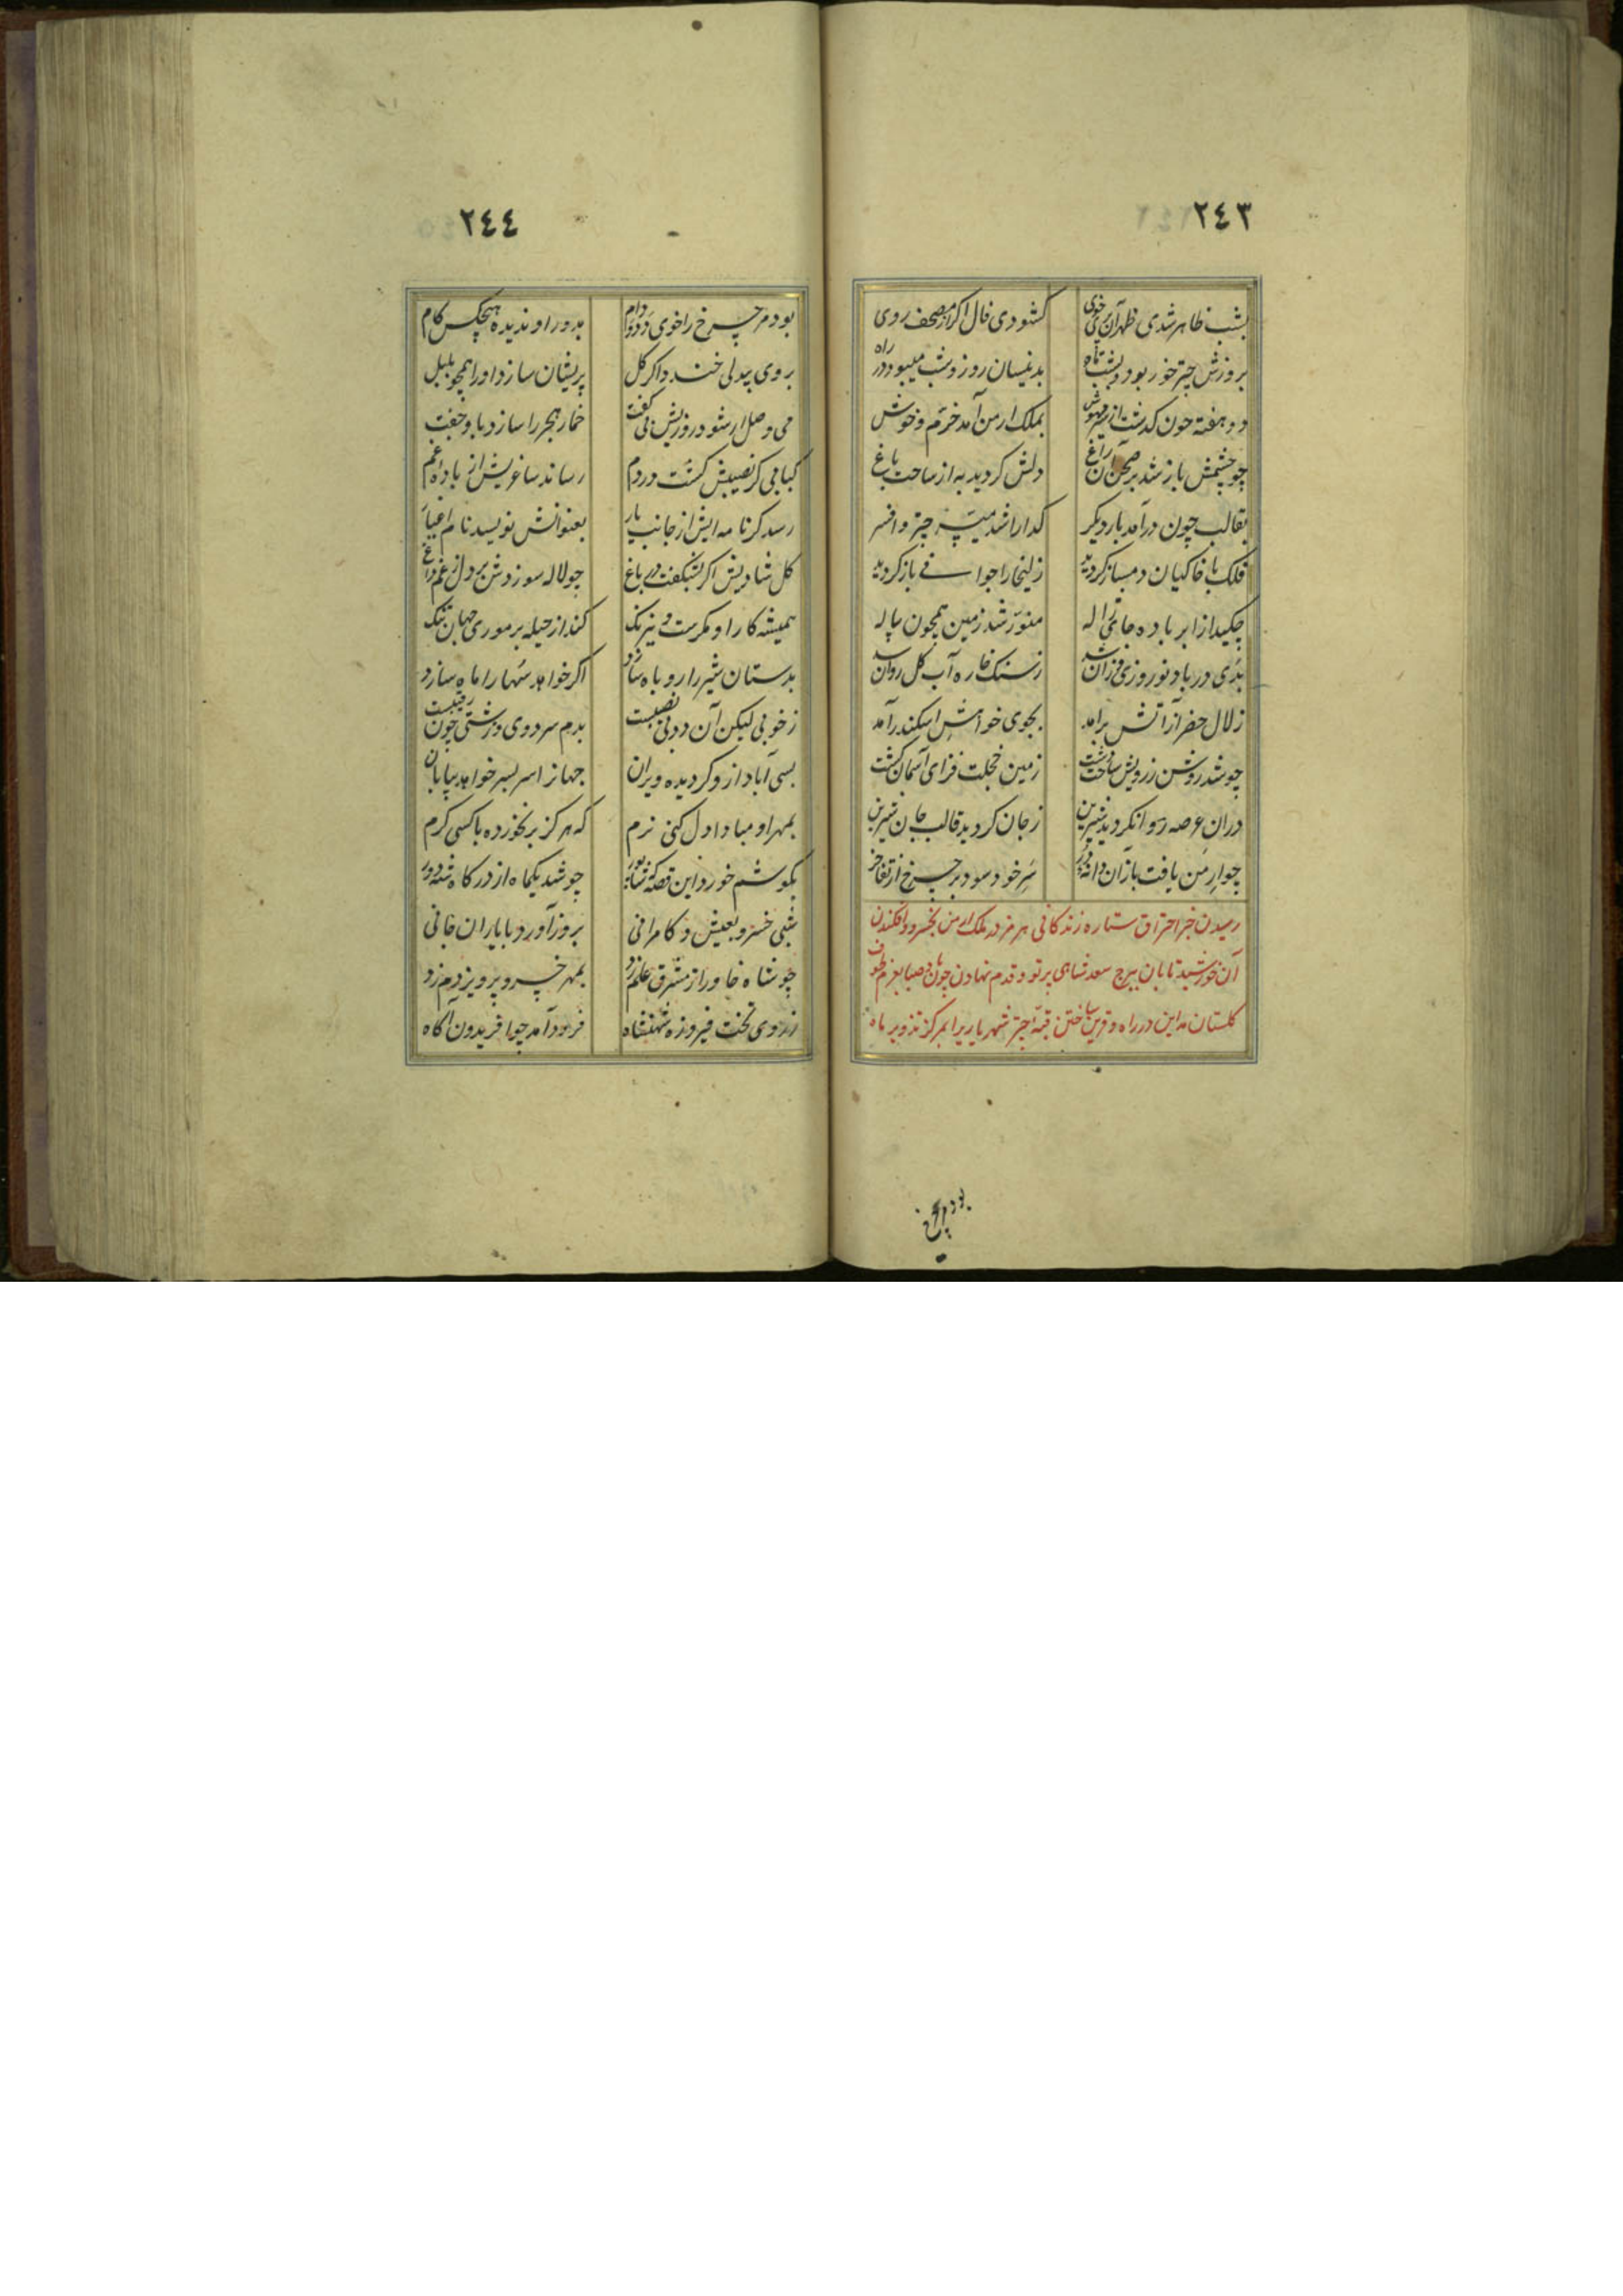 ٢٤٣
بشب ظاهر شدی ظهر آن پری خوی کشودی فال اکر از مصحف روی
بروزش چتر خور بود و بشب ماه بدینسان روز و شب میبود در راه
دو هفته چون کذشت از سیر مهوش بملک ارمن آمد خرّم و خوش
چو چشمش باز شد بر صحن آن راغ دلش کردید به از ساحت باغ
بقالب چون درآمد بار دیکر کدا را شد میسّر چتر و افسر
فلک با خاکیان دمساز کردید زلیخا را جوانی باز کردید
چکید از ابر باده جای ژاله منوّر شد زمین همچون پیاله
بدی در باد نوروزی وزان شد ز سنک خاره آب کل روان شد
زلال خضر از آتش برآمد بجوی خواهش اسکندر آمد
چو شد روشن ز رویش ساحت دشت زمین خجلت فزای آسمان کشت
دران عرصه روان کردید شیرین ز جان کردید قالب جان شیرین
چو ارمن یافت باز آن دانهٔ در سر خود سود بر چرخ از تفاخر
رسیدن خبر احتراق ستاره زندکانی هرمز در ملک ارمن بخسرو و افکندن
آن خورشید تابان ببرج سعد شاهی پرتو و قدم نهادن چون باد صبا بعزم طوف
کلستان مداین در راه و قرین ساختن قبّهٔ چتر شهریاریرا بمرکز تدویر ماه
بود چرخ
٢٤٤
بود مر چرخ را خوی دد و دام بدور او ندیده هیچکس کام
بروی بیدلی خندد اکر کل پریشان سازد او را همچو بلبل
می وصل ار شود روزیش بی کفت خمار هجر را سازد باو جفت
کبابی کر نصیبش کشت در دم رساند ساغریش از باده غم
رسد کر نامه ایش از جانب یار بعنوانش نویسد نام اغیار
کل شادیش اکر بشکفت در باغ چو لاله سوزدش بر دل ز غم داغ
همیشه کار او مکرست و نیرنک کند از حیله بر موری جهان تنک
بدستان شیر را روباه سازد اکر خواهد سها را ماه سازد
ز خوبی لیکن آن دد بی نصیبست بدم سردی و زشتی چون رقیبست
بسی آباد ازو کردیده ویران جهانرا سر بسر خواهد بیابان
بمهر او مبادا دل کنی نرم که هرکز بر نخورده با کسی کرم
بکوشم خورد این قصّه ز شاپور چو شد یکماه از درکاه شه دور
شبی خسرو بعیش و کامرانی بروز آورد با یاران جانی
چو شاه خاور از مشرق علم زد بمهر خسرو پرویز دم زد
ز روی تخت فیروزه شهنشاه فرود آمد چو افریدون آکاه